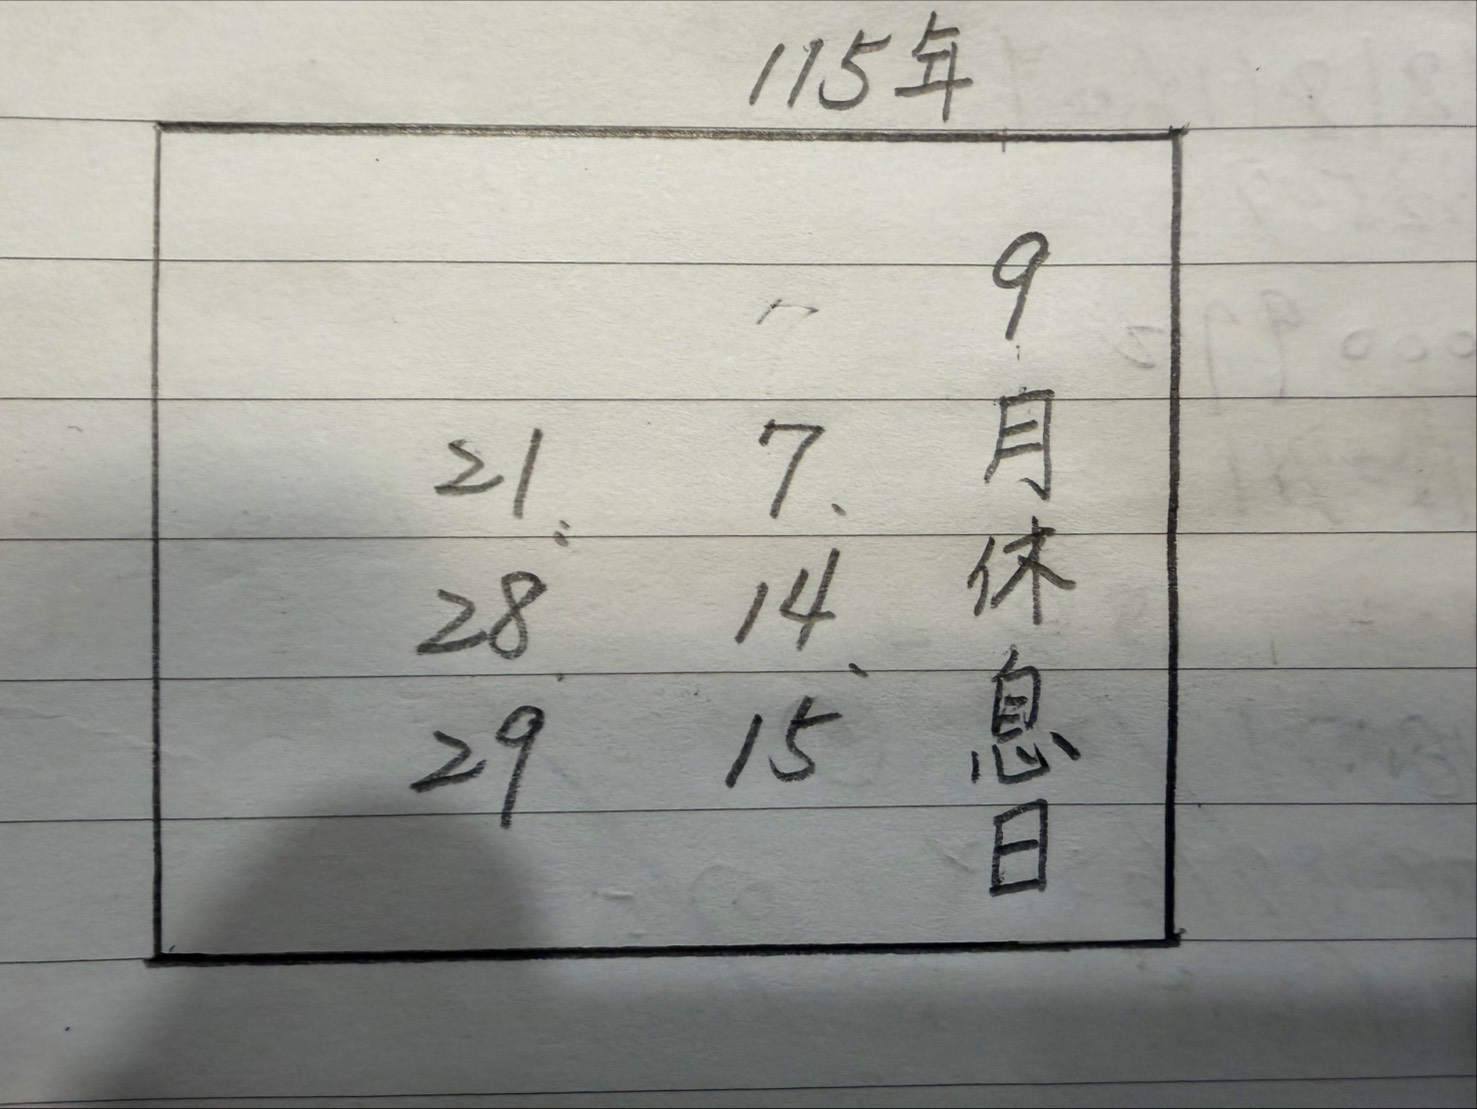 115年
9月休息日
7、14、15
21、28、29